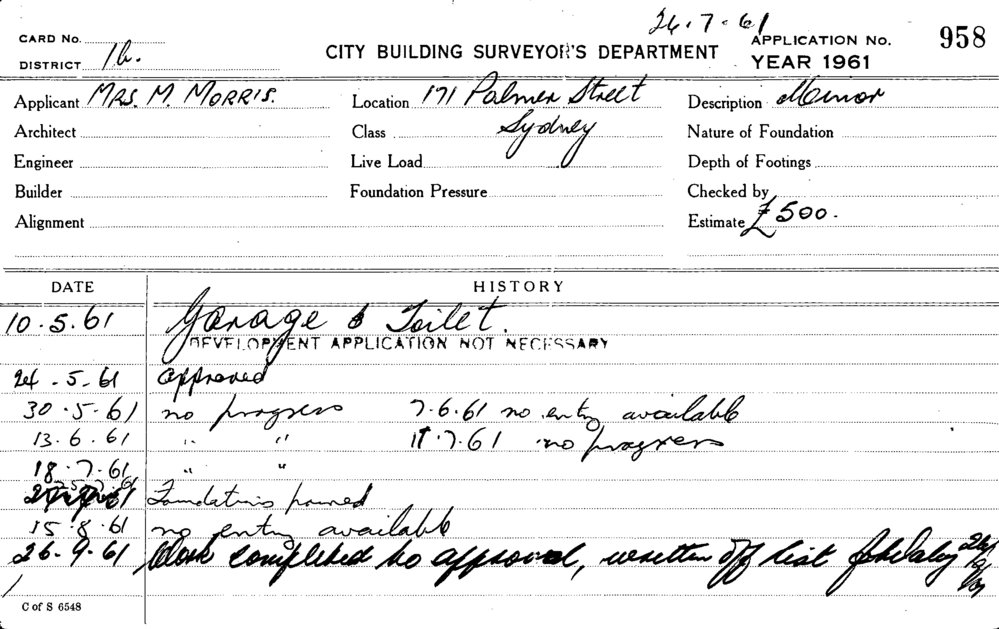 26.7.61
CARD No.
CITY BUILDING SURVEYOR'S DEPARTMENT
APPLICATION No. 958
DISTRICT 16.
YEAR 1961
Applicant MRS. M. MORRIS.
Location 171 Palmer Street
Sydney
Description Minor
Architect
Class
Nature of Foundation
Engineer
Live Load
Depth of Footings
Builder
Foundation Pressure
Checked by
Alignment
Estimate £500.
DATE HISTORY
10.5.61 Garage & Toilet.
DEVELOPMENT APPLICATION NOT NECESSARY
24.5.61 approved
30.5.61 no progress 7.6.61 no entry available
13.6.61 " " 11.7.61 no progress
18.7.61 " "
Foundations poured
15.8.61 no entry available
26.9.61 Work completed to approval, written off list
C of S 6548